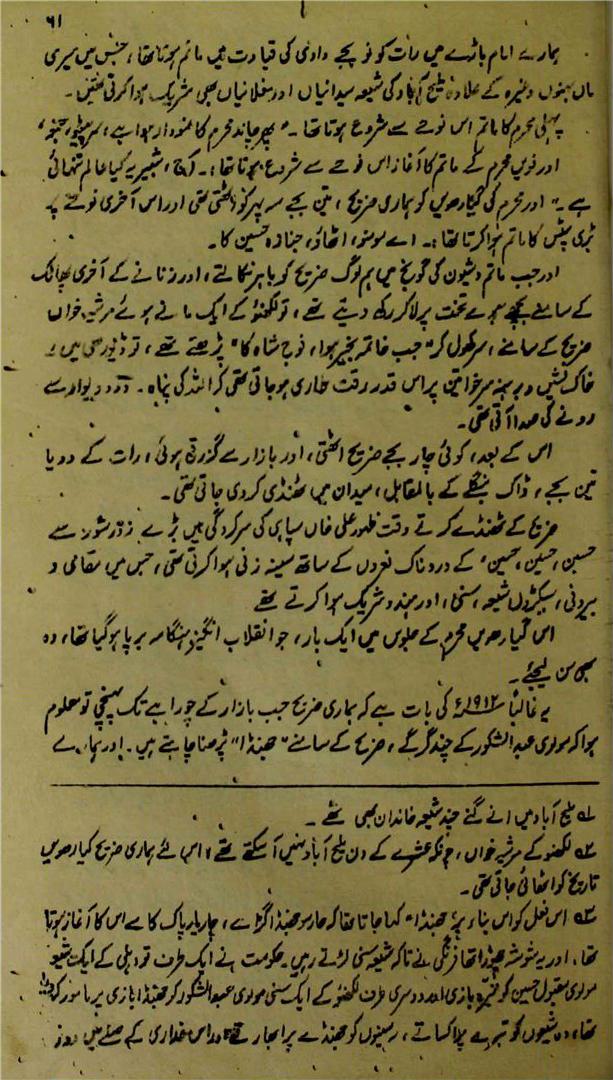 ۶۱
ہمارے امام باڑے میں رات کو نو بجے دادی کی قیادت میں ماتم ہوتا تھا، جس میں میری
ماں بہنوں وغیرہ کے علاوہ ملیح آباد کی شیعہ سیدانیاں اور مغلانیاں بھی شریک ہوا کرتی تھیں۔
پہلی محرم کا ماتم اس نوحے سے شروع ہوتا تھا۔ "پھر چاند محرم کا نمودار ہوا ہے، سر پیٹو، محبو،"
اور نویں محرم کے ماتم کا آغاز اس نوحے سے شروع ہوتا تھا:۔ آج، شبیر پہ کیا عالم تنہائی
ہے۔" اور محرم کی گیارھویں کو ہماری ضریح، تین بجے سہ پہر کو اٹھتی تھی اور اس آخری نوحے پہ
بڑی پٹس کا ماتم ہوا کرتا تھا:۔ اے مومنو، اٹھاؤ، جنازہ حسین کا۔
اور جب ماتم و شیون کی گونج میں ہم لوگ ضریح کو باہر نکالتے، اور زنانے کے آخری پھاٹک
کے سامنے بچھے ہوئے تخت پر لا کر رکھ دیتے تھے، تو لکھنؤ کے ایک مانے ہوئے مرثیہ خواں
ضریح کے سامنے، سر کھول کر "جب خاتمہ بخیر ہوا، فوج شاہ کا" پڑھتے تھے، تو ڈیوڑھی میں
خاک نشیں و برہنہ سر خواتین پر اس قدر رقت طاری ہو جاتی تھی کہ اللہ کی پناہ۔ در و دیوار سے
رونے کی صدا آتی تھی۔
اس کے بعد، کوئی چار بجے ضریح اٹھتی، اور بازار سے گزرتی ہوئی، رات کے دو یا
تین بجے، ڈاک بنگلے کے بالمقابل، میدان میں ٹھنڈی کر دی جاتی تھی۔
ضریح کے ٹھنڈے کرتے وقت ظہور علی خاں سپاہی کی سرکردگی میں بڑے زور شور سے
حسین، حسین، حسین، کے دردناک نعروں کے ساتھ سینہ زنی ہوا کرتی تھی، جس میں مقامی و
بیرونی، سیکڑوں شیعہ، سنی، اور ہندو شریک ہوا کرتے تھے
اس گیارھویں محرم کے جلوس میں ایک بار، جو انقلاب انگیز ہنگامہ برپا ہو گیا تھا، وہ
بھی سن لیجئے۔
یہ غالباً ۱۹۱۲ء کی بات ہے کہ ہماری ضریح جب بازار کے چوراہے تک پہنچی تو معلوم
ہوا کہ مولوی عبدالشکور کے چند گرگے، ضریح کے سامنے "جھنڈا" پڑھنا چاہتے ہیں۔ اور ہمارے
؎۱ ملیح آباد میں انے گنے چند شیعہ خاندان بھی تھے۔
؎۲ لکھنؤ کے مرثیہ خواں، چونکہ عشرے کے دن ملیح آباد نہیں آ سکتے تھے، اس لئے ہماری ضریح گیارھویں
تاریخ کو اٹھائی جاتی تھی۔
؎۳ اس نعل کو اس بناء پر "جھنڈا" کہا جاتا تھا کہ جھنڈا گڑا ہے، چار یار پاک کا سے اس کا آغاز ہوتا
تھا، اور یہ شوشہ چھوڑا تھا فرنگی نے تاکہ شیعہ سنی لڑتے رہیں۔ حکومت نے ایک طرف تو دہلی کے ایک شیعہ
مولوی مقبول حسین کو تبرہ بازی اور دوسری طرف لکھنؤ کے ایک سنی مولوی عبدالشکور کو جھنڈا بازی پر مامور کر دیا
تھا، وہ شیعوں کو تبرے پر اکساتے، یہ سنیوں کو جھنڈے پر ابھارتے تھے اور اس غداری کے صلے میں